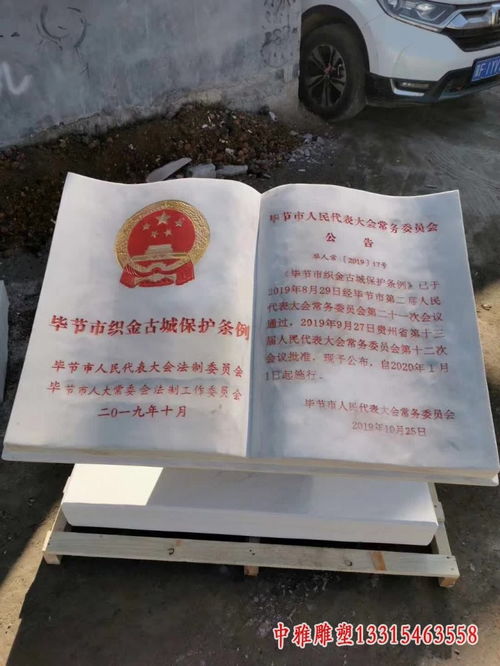 毕节市织金古城保护条例
毕节市人民代表大会法制委员会
毕节市人大常委会法制工作委员会
二〇一九年十月
毕节市人民代表大会常务委员会
公告
毕人常〔2019〕17号
《毕节市织金古城保护条例》已于
2019年8月29日经毕节市第二届人民
代表大会常务委员会第二十一次会议
通过，2019年9月27日贵州省第十三
届人民代表大会常务委员会第十二次
会议批准，现予公布，自2020年1月
1日起施行。
毕节市人民代表大会常务委员会
2019年10月25日
中雅雕塑13315463558